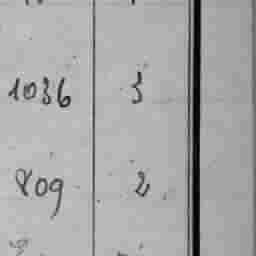 1036 3
809 2